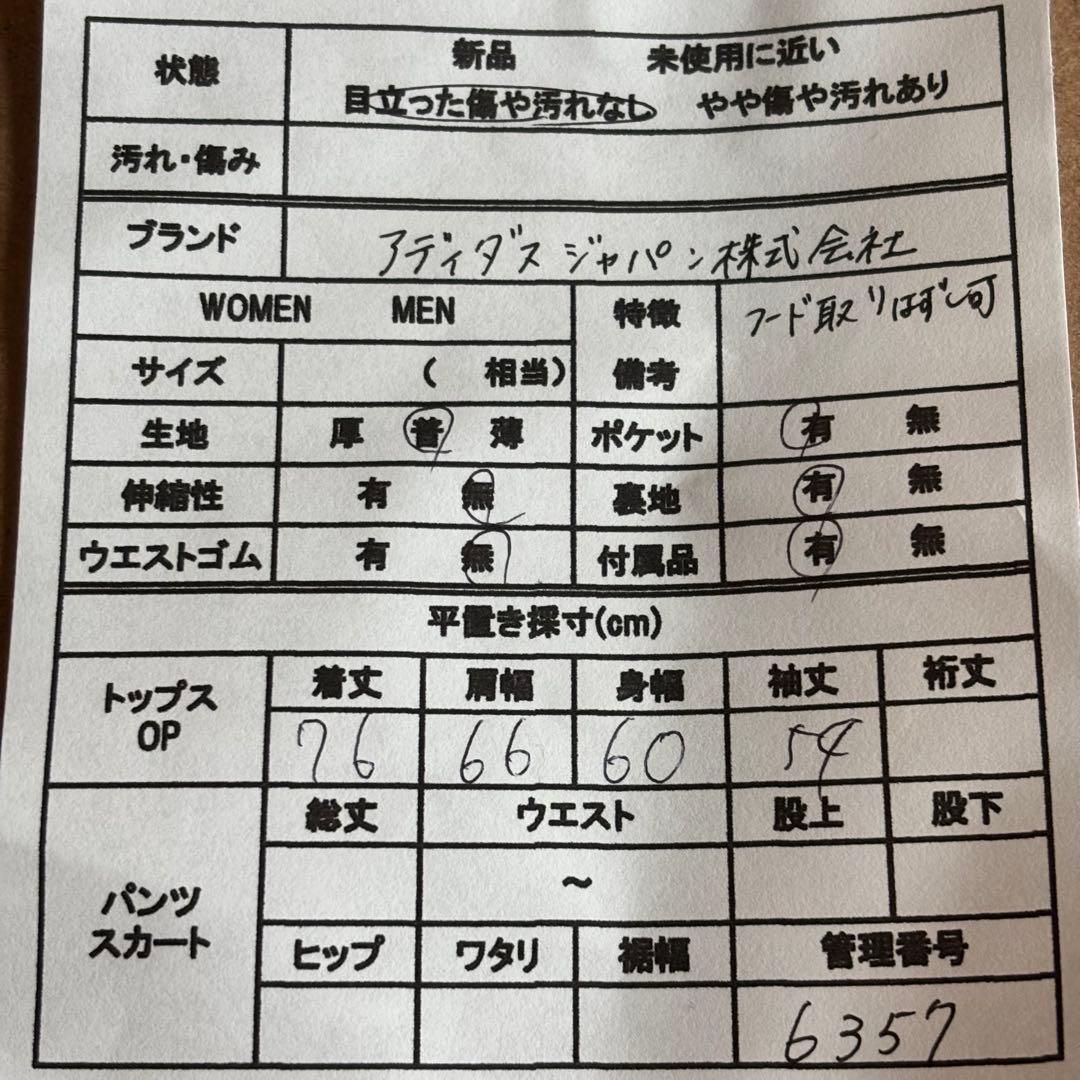 状態 新品 未使用に近い
目立った傷や汚れなし やや傷や汚れあり
汚れ・傷み
ブランド アディダスジャパン株式会社
WOMEN MEN 特徴 フード取りはずし可
サイズ ( 相当) 備考
生地 厚 普 薄 ポケット 有 無
伸縮性 有 無 裏地 有 無
ウエストゴム 有 無 付属品 有 無
平置き採寸(cm)
トップス 着丈 肩幅 身幅 袖丈 裄丈
OP 76 66 60 54
総丈 ウエスト 股上 股下
パンツ ～
スカート ヒップ ワタリ 裾幅 管理番号
6357